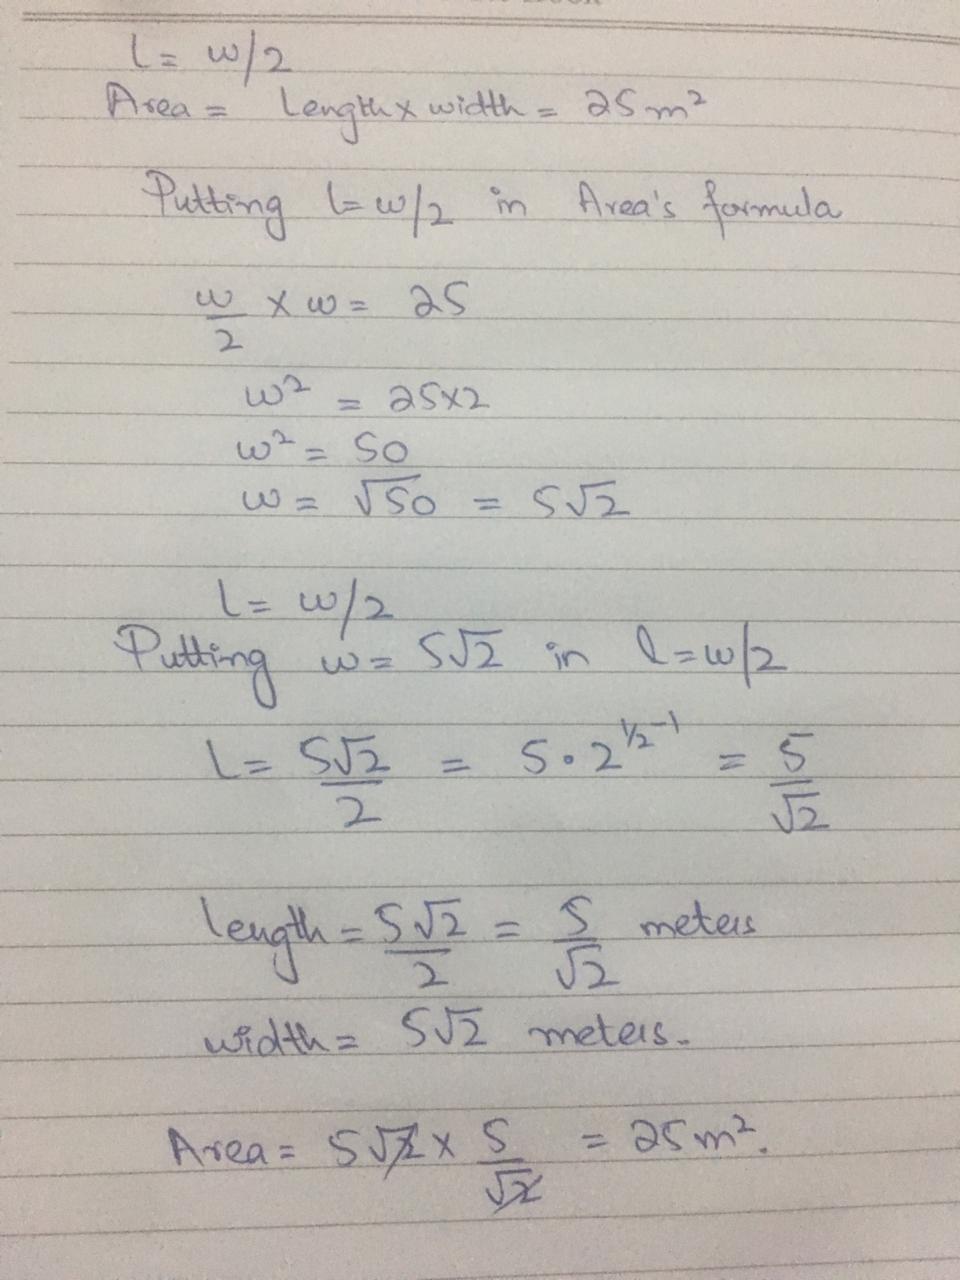 l = w/2
Area = Length x width = 25 m²
Putting l = w/2 in Area's formula
w/2 x w = 25
w² = 25x2
w² = 50
w = √50 = 5√2
l = w/2
Putting w = 5√2 in l = w/2
L = 5√2/2 = 5 · 2^(1/2-1) = 5/√2
length = 5√2/2 = 5/√2 meters
width = 5√2 meters.
Area = 5√2 x 5/√2 = 25 m².